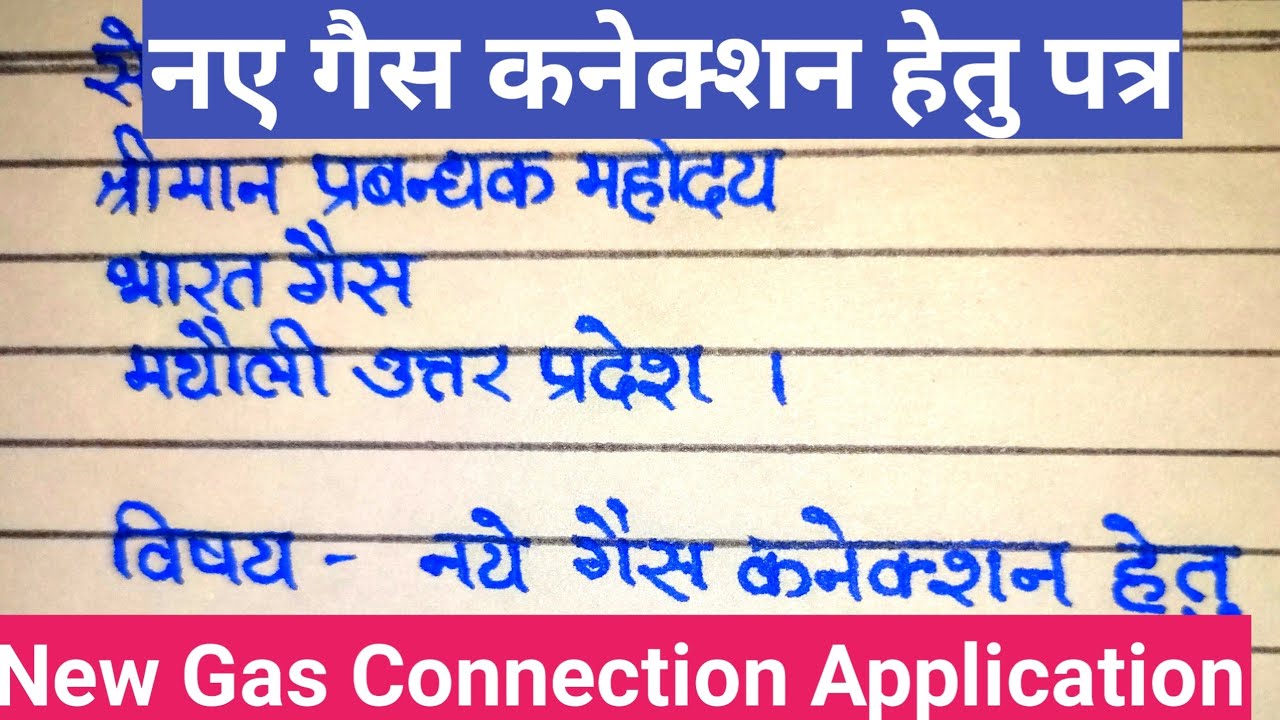 नए गैस कनेक्शन हेतु पत्र
श्रीमान प्रबन्धक महोदय
भारत गैस
मथौली उत्तर प्रदेश ।
विषय - नये गैस कनेक्शन हेतु
New Gas Connection Application